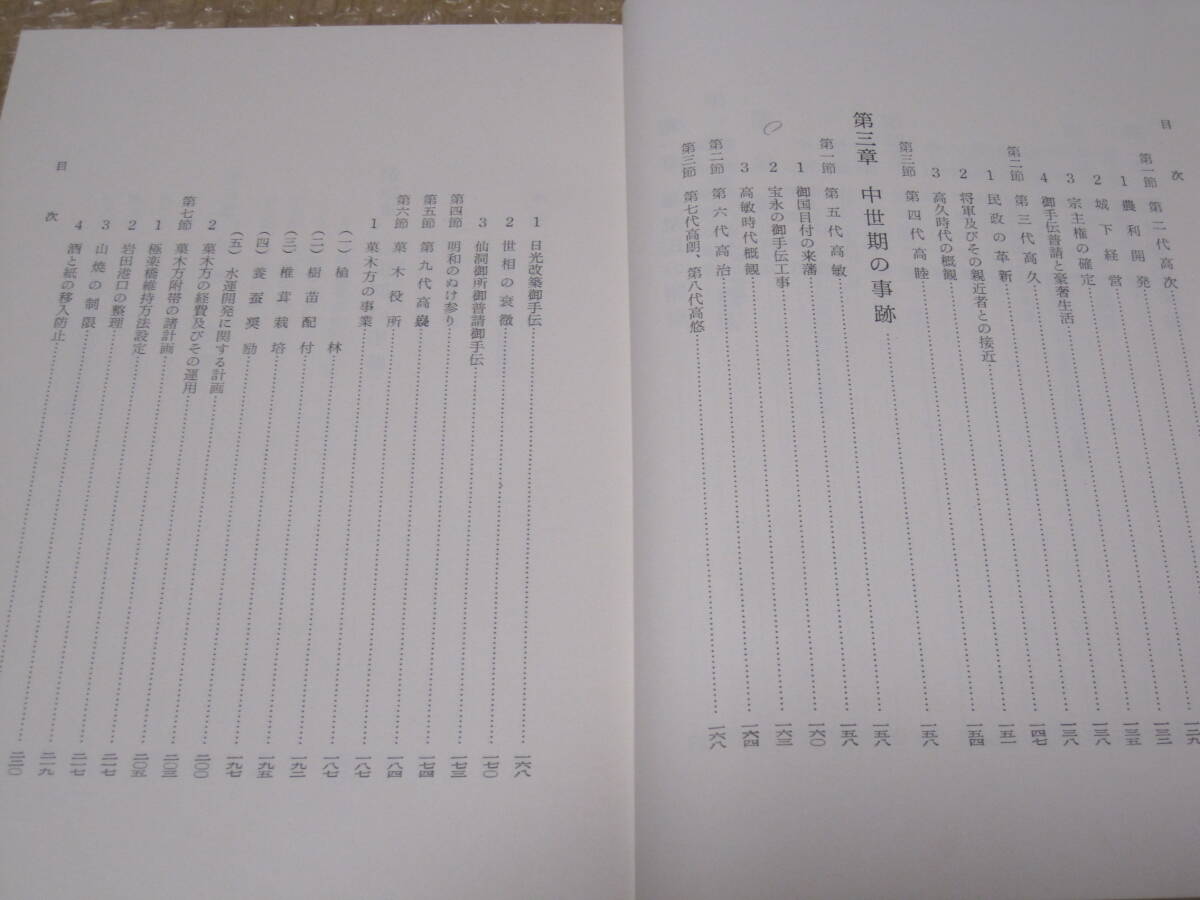 目次
第一節 第二代高次
1 農利開発
2 城下経営……二九
3 宗主権の確定……一三二
4 御手伝普請と豪奢生活……一三五
第二節 第三代高久……一三八
1 民政の革新……一三八
2 将軍及びその親近者との接近……一四七
3 高久時代の概観……一五一
第三節 第四代高睦……一五四
第三章 中世期の事跡……一五八
第一節 第五代高敏……一五八
1 御国目付の来藩……一五八
2 宝永の御手伝工事……一六〇
3 高敏時代概観……一六三
第二節 第六代高治……一六四
第三節 第七代高朗、第八代高悠……一六八
1 日光改築御手伝……一六八
2 世相の衰徴……一七〇
3 仙洞御所御普請御手伝……一七三
第四節 明和のぬけ参り……一七四
第五節 第九代高嶷……一八四
第六節 菓木役所……一八七
1 菓木方の事業……一八七
(一) 植林……一九二
(二) 樹苗配付……一九五
(三) 椎茸栽培……一九七
(四) 養蚕奨励……二〇〇
(五) 水運開発に関する計画……二〇三
2 菓木方の経費及びその運用……二〇五
第七節 菓木方附帯の諸計画……二一七
1 極楽橋維持方法設定……二一七
2 岩田港口の整理……二一九
3 山焼の制限……二二〇
4 酒と紙の移入防止
目次